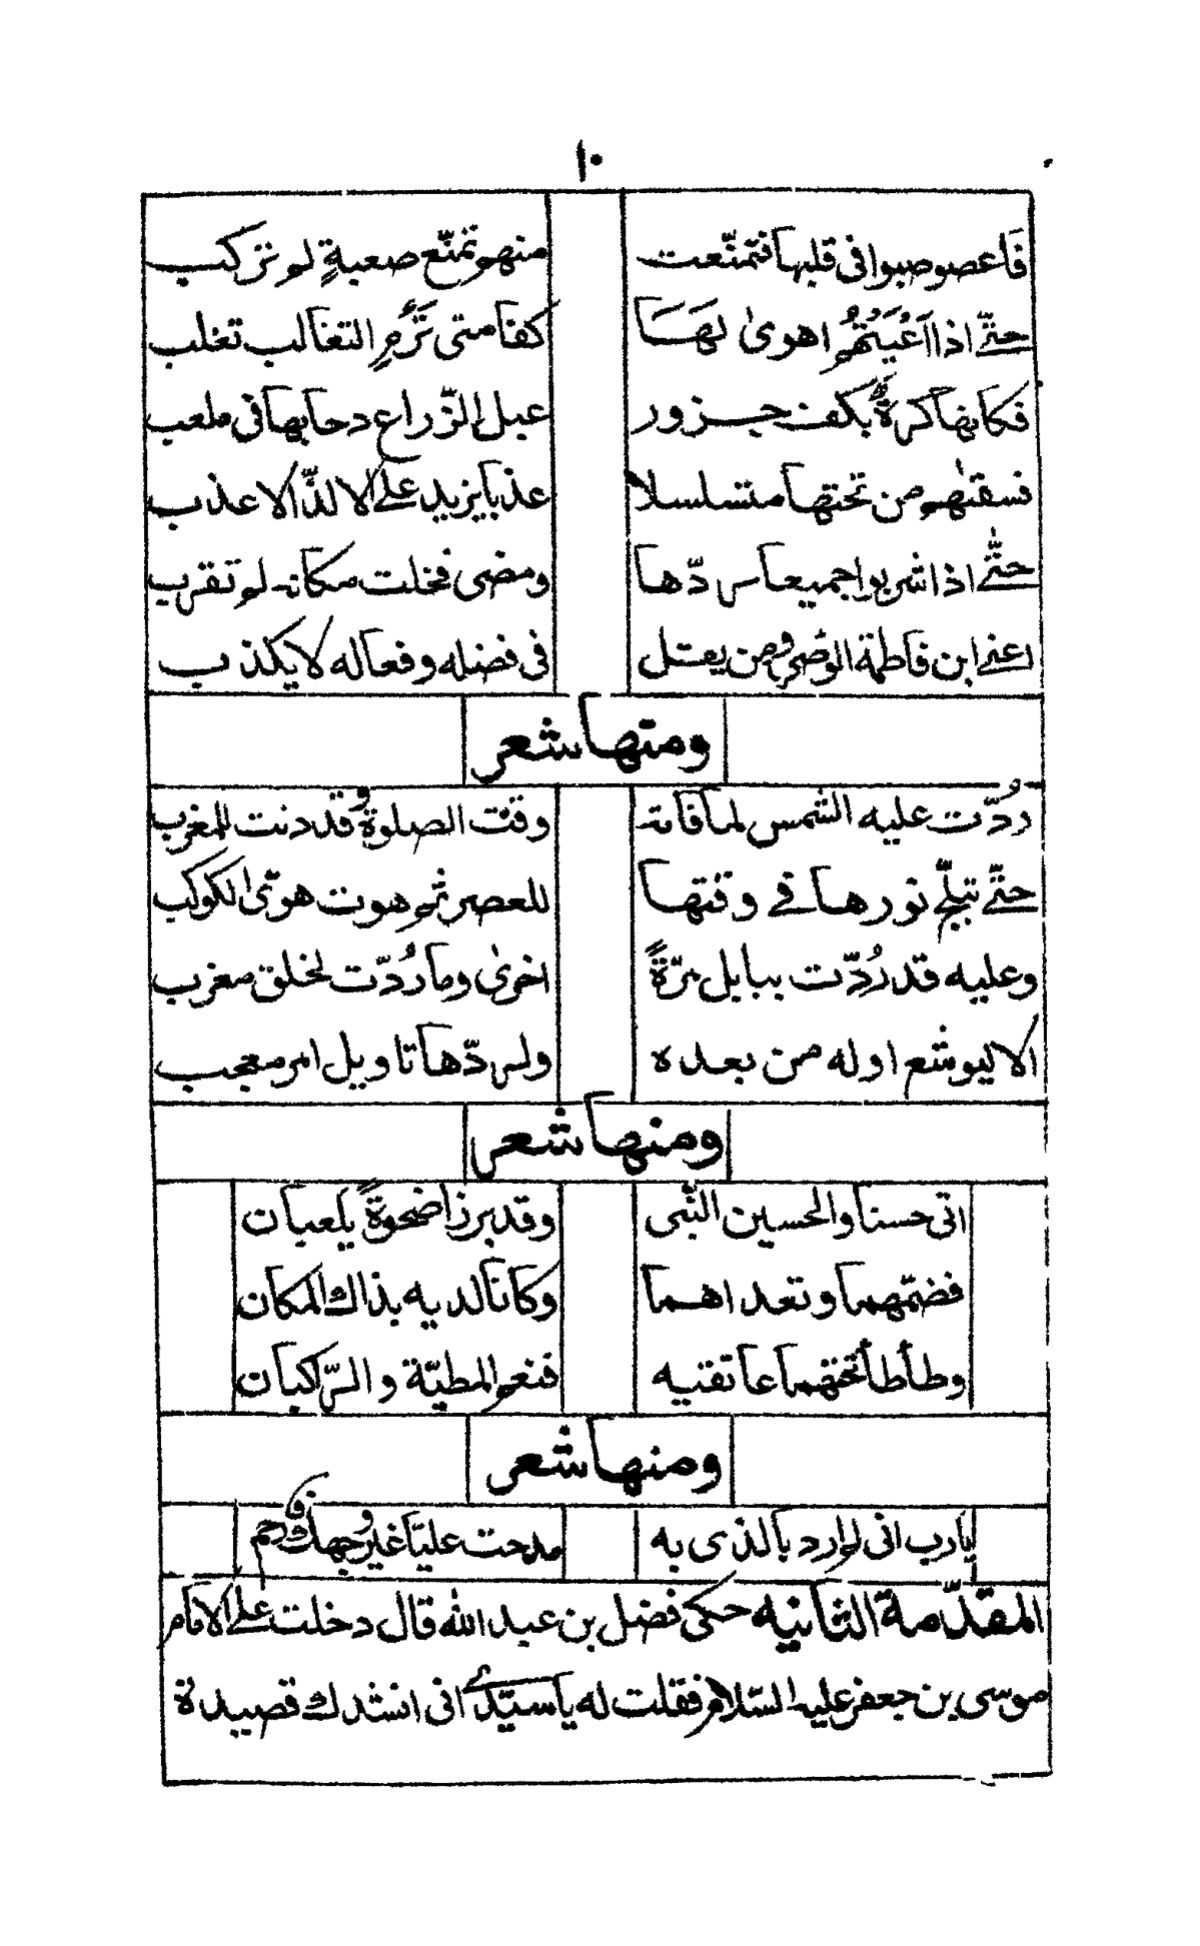 ١٠
فاعصوصبوا في قلبها فتمنّعت منهم تمنّع صعبةٍ لم تركب
حتّى اذا اَعْيَتْهُمُ اهوىٰ لهَا كفا متى تَرُمِ التغالب تغلب
فكانها كرةٌ بكف جزور عبل الذّراع دحا بها في ملعب
فسقىٰهم من تحتها متسلسلا عذبا يزيد على الالذّ الاعذب
حتّى اذا شربوا جميعا ردّها ومضى فخلت مكانه لم تقرب
اعنى ابن فاطمة الوصّى ومن يقل فى فضله وفعاله لا يكذب
ومنها شعر
رُدّت عليه الشمس لما فاته وقت الصلوة وقد دنت للمغرب
حتّى تبلّج نورها فى وقتها للعصر ثم هوت هوّىٰ الكوكب
وعليه قد رُدّت ببابل مرّةً اخرىٰ وما رُدّت لخلق مغرب
الا ليوشع او له من بعده ولردّها تاويل امر معجب
ومنها شعر
اتى حسنا والحسين النّبى وقد برزا ضحوةً يلعبان
فضمّهما وتعداهما وكانا لديه بذاك المكان
وطأطأ تحتهما عاتقيه فنعم المطيّة والرّاكبان
ومنها شعر
يارب انى لم ارد بالذى به مدحت عليّا غير وجهك فارحم
المقدّمة الثانيه حكى فضل بن عبد الله قال دخلت على الامام
موسى بن جعفر عليه السّلام فقلت له يا سيّدى انى انشدك قصيدة